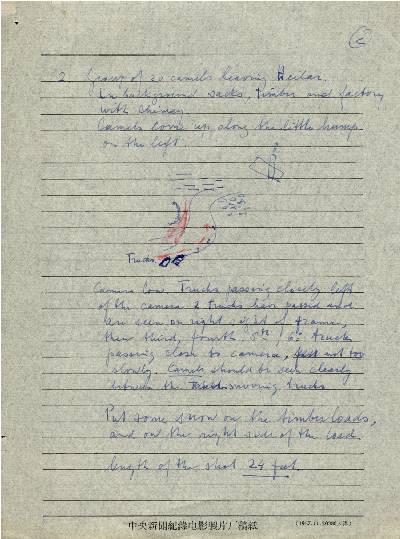 2
2. Group of 20 camels leaving Heilar.
In background sacks, timber and factory
with chimney.
Camels come up along the little hump
on the left.
Trucks
Camera low. Trucks passing closely left
of the camera 2 trucks have passed and
are seen on right side of frame,
then third, fourth truck
passing close to camera, not too
slowly. Camels should be seen clearly
between the moving trucks
Put some snow on the timber loads,
and on the right side of the road.
length of the shot 24 feet.
中央新聞紀錄电影製片厂稿紙